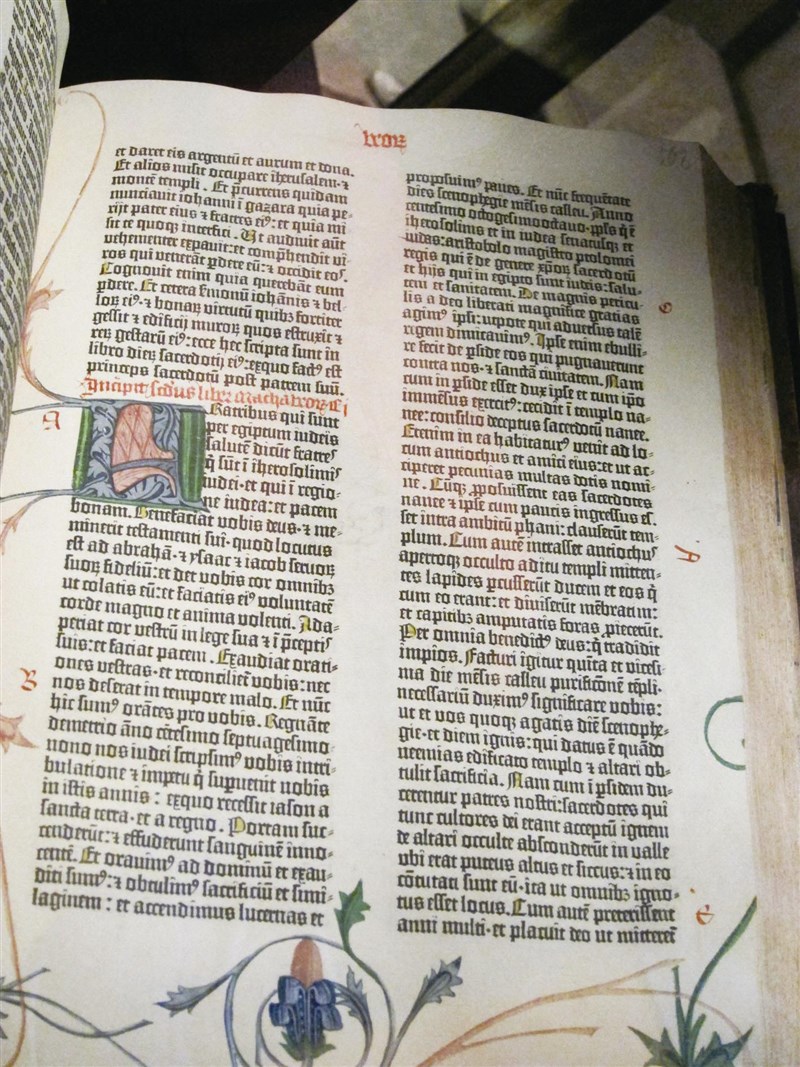 et daret eis argentū et aurum et dona.
Et alios misit occupare iherusalem·⁊
montē templi. Et p̄currens quidam
nunciauit iohanni ī gazara quia pe-
rijt pater eius ⁊ fratres ei⁹: et quia mi
sit te quoq; interfici. Ut audiuit aūt
vehementer expauit: et comp̄hendit vi-
ros qui venerāt ꝑdere eū: ⁊ occidit eos.
Cognouit enim quia querebāt eum
ꝑdere. Et cetera ẜmonū iohānis ⁊ bel-
loꝝ ei⁹· ⁊ bonaꝝ virtutū quibꝫ fortiter
gessit ⁊ edificij muroꝝ quos extruxit ⁊
reꝝ gestarū ei⁹: ecce hec scripta sunt in
libro dieꝝ sacerdotij ei⁹: exquo fact⁹ est
princeps sacerdotū post patrem suū.
Incipit secūdus liber machabeoꝝ
A
Fratribus qui sunt
per egiptum iudeis
salutē dicūt fratres
q̄ sūt ī iherosolimis
iudei·et qui ī regio-
ne iudea: et pacem
bonam. Benefaciat vobis deus·⁊ me-
minerit testamenti sui· quod locutus
est ad abrahā·⁊ ysaac ⁊ iacob seruoꝝ
suoꝝ fideliū: et det vobis cor omnibꝫ
ut colatis eū: et faciatis ei⁹ voluntatē
corde magno et anima volenti. Ada-
periat cor vestrū in lege sua ⁊ ī p̄ceptis
suis: et faciat pacem. Exaudiat orati-
ones vestras·et reconciliet̄ vobis: nec
B
nos deserat in tempore malo. Et nūc
hic sum⁹ orātes pro vobis. Regnāte
demetrio āno cētesimo septuagesimo
nono nos iudei scripsim⁹ vobis intri-
bulatione ⁊ impetu q̄ suꝑuenit nobis
in istis annis: exquo recessit iason a
sancta terra·et a regno. Portam suc-
cenderūt: ⁊ effuderunt sanguinē inno-
centē. Et orauim⁹ ad dominū et exau-
diti sum⁹: ⁊ obtulim⁹ sacrificiū et simi-
laginem: et accendimus lucernas et
proposuim⁹ panes. Et nūc frequētate
dies scenophegie mēsis casleu. Anno
centesimo octogesimooctauo·pp̄ls q̄ ē
iherosolimis et in iudea senatusq; et
iudas: aristobolo magistro ptolomei
regis qui ē de genere xp̄oꝝ sacerdotū
et hijs qui in egipto sunt iudeis: salu-
C
tem et sanitatem. De magnis pericu-
lis a deo liberati magnifice gratias
agim⁹ ipsi: utpote qui aduersus talē
regem dimicauim⁹. Ipse enim ebulli-
re fecit de ꝑside eos qui pugnauerunt
contra nos·⁊ sanctā ciuitatem. Nam
cum in ꝑside esset dux ipse et cum ip̄o
immēsus exercit⁹: cecidit ī templo na-
nee: consilio deceptus sacerdotū nanee.
Etenim in ea habitatur⁹ venit ad lo-
cum antiochus et amici eius: et ut ac-
ciperet pecunias multas dotis nomi-
ne. Cūq; ꝓposuissent eas sacerdotes
nanee ⁊ ipse cum paucis ingressus es-
set intra ambitū phani: clauserūt tem-
A
plum. Cum autē intrasset antiochus
apertoq; occulto aditu templi mitten-
tes lapides ꝑcusserūt ducem et eos q̄
cum eo erant: et diuiserūt mēbratim:
et capitibꝫ amputatis foras ꝓiecerūt.
Per omnia benedict⁹ deus: q̄ tradidit
impios. Facturi igitur quīta et vicesi-
ma die mēsis casleu purificōnē tēpli·
necessariū duxim⁹ significare vobis:
ut et vos quoq; agatis diē scenophe-
gie·et diem ignis: qui datus ē quādo
neemias edificato templo ⁊ altari ob-
tulit sacrificia. Nam cum ī ꝑsidem du-
cerentur patres nostri: sacerdotes qui
tunc cultores dei erant acceptū ignem
de altari occulte absconderūt in valle
vbi erat puteus altus et siccus: ⁊ in eo
cōtutati sunt eū· ita ut omnibꝫ igno-
tus esset locus. Cum autē preterissent
anni multi·et placuit deo ut mitteret̄